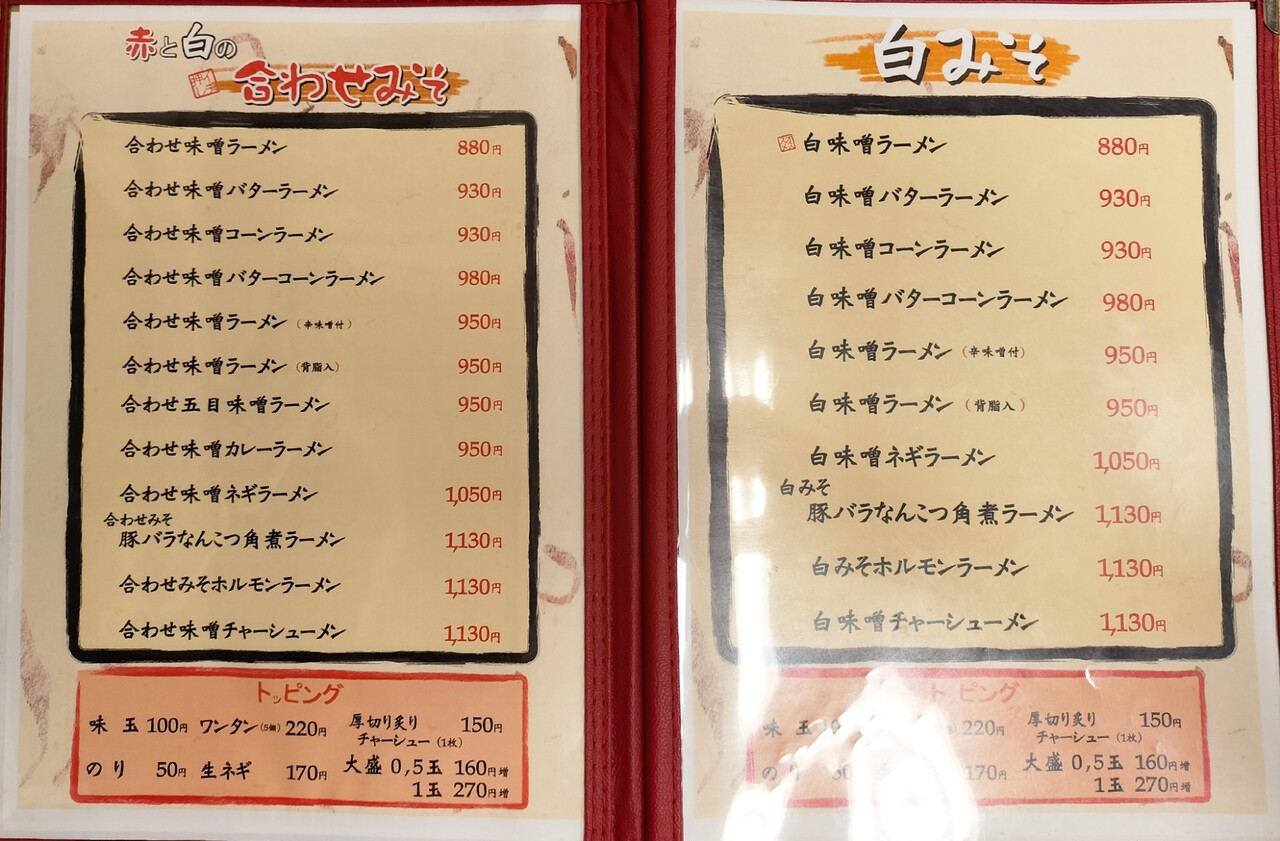 赤と白の
イチ押し 合わせみそ
合わせ味噌ラーメン 880円
合わせ味噌バターラーメン 930円
合わせ味噌コーンラーメン 930円
合わせ味噌バターコーンラーメン 980円
合わせ味噌ラーメン(辛味噌付) 950円
合わせ味噌ラーメン(背脂入) 950円
合わせ五目味噌ラーメン 950円
合わせ味噌カレーラーメン 950円
合わせ味噌ネギラーメン 1,050円
合わせみそ
豚バラなんこつ角煮ラーメン 1,130円
合わせみそホルモンラーメン 1,130円
合わせ味噌チャーシューメン 1,130円
トッピング
味玉 100円 ワンタン(5個) 220円 厚切り炙り 150円
チャーシュー(1枚)
のり 50円 生ネギ 170円 大盛 0,5玉 160円増
1玉 270円増
白みそ
白味噌ラーメン 880円
白味噌バターラーメン 930円
白味噌コーンラーメン 930円
白味噌バターコーンラーメン 980円
白味噌ラーメン(辛味噌付) 950円
白味噌ラーメン(背脂入) 950円
白味噌ネギラーメン 1,050円
白みそ
豚バラなんこつ角煮ラーメン 1,130円
白みそホルモンラーメン 1,130円
白味噌チャーシューメン 1,130円
トッピング
味玉 220円 厚切り炙り 150円
チャーシュー(1枚)
のり 170円 大盛 0,5玉 160円増
1玉 270円増